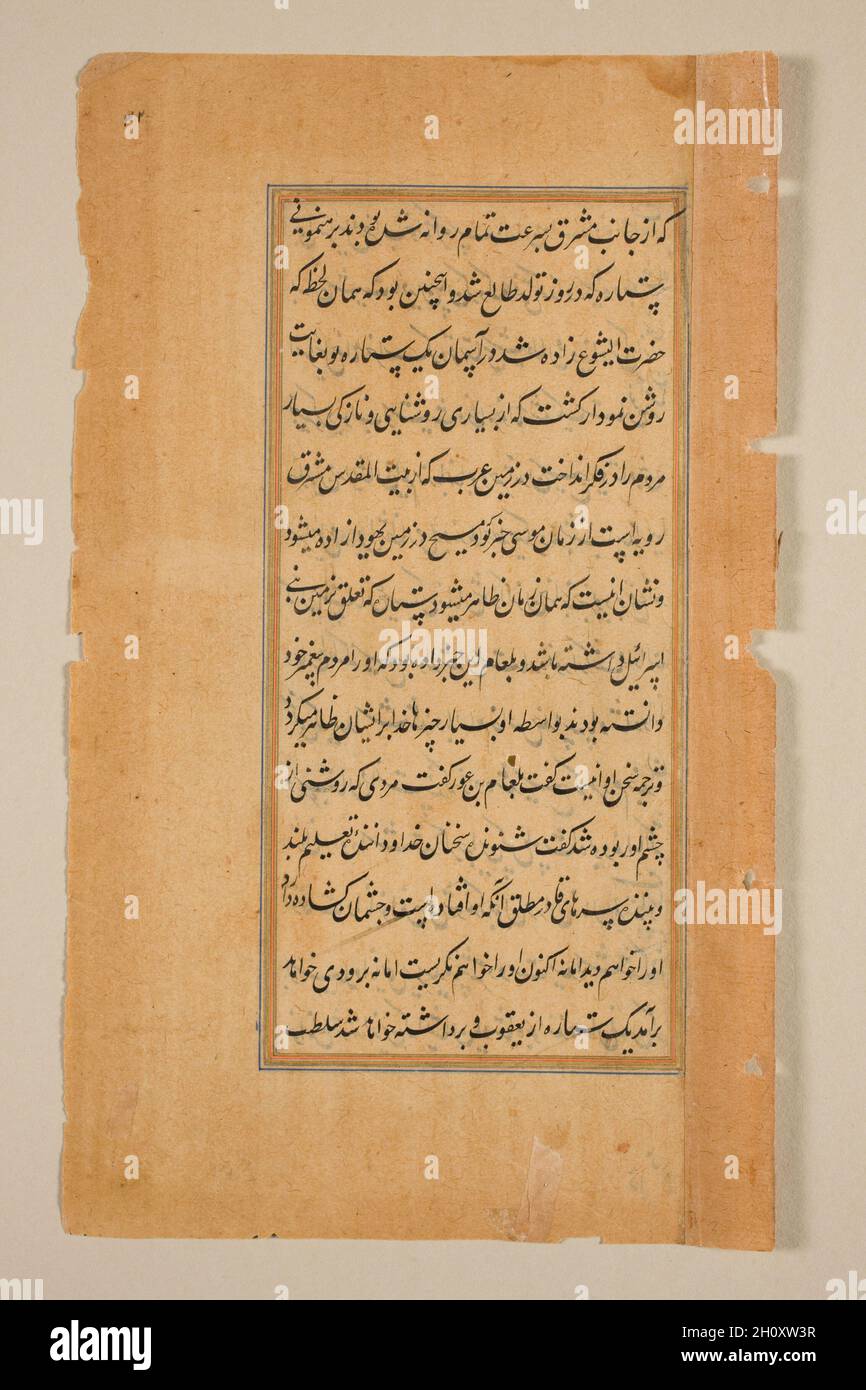 که از جانب مشرق بسرعت تمام روانه شده بودند برهنمونی
ستاره که در روز تولد طالع شد و اینچنین بود که همان لحظ که
حضرت ایشوع زاده شد در آسمان یک ستاره نو بغایت
روشن نمودار کشت که از بسیاری روشنایی و نازکی بسیار
مردم را در فکر انداخت در زمین عرب که از بیت المقدس مشرق
رویه است از زمان موسی خبر بود مسیح در زمین یهودا زاده میشود
و نشان اینست که همان زمان ظاهر میشود ستاره که تعلق بزمین بنی
اسرائیل داشته باشد و بلعام این خبر داده بود که او را مردم پیغمبر خود
دانسته بودند بواسطه او بسیار چیزها خدا برایشان ظاهر میکرد
و ترجمه سخن او اینست کفت بلعام بن عور کفت مردی که روشنی از
چشم او ربوده شد کفت شنونده سخنان خدا و داننده تعلیم بلند
و بیننده سرهای قادر مطلق آنکه او افتاده است و چشمان کشاده دارد
او را خواهم دید اما نه اکنون او را خواهم نکریست اما نه بزودی خواهد
برآمد یک ستاره از یعقوب و برداشته خواهد شد سلطنت
alamy
Image ID: 2H0XW3R
www.alamy.com